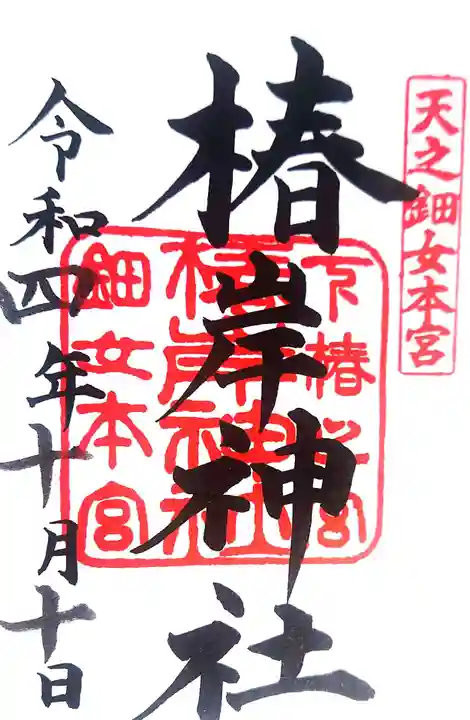 天之鈿女本宮
椿岸神社
下椿
椿岸神社
鈿女本宮
令和四年十月十日